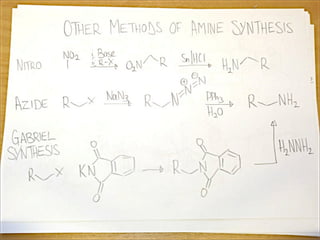 OTHER METHODS OF AMINE SYNTHESIS
NITRO NO₂ 1. Base 2. R-X O₂N R Sn/HCl H₂N R
AZIDE R X NaN₃ R N=N=N ⊕ ⊖ PPh₃ H₂O R NH₂
GABRIEL
SYNTHESIS
R X KN O O R N O O H₂NNH₂